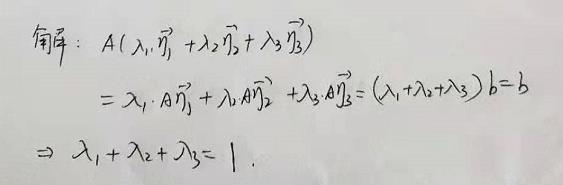 解: A(λ₁·η₁⃗ + λ₂η₂⃗ + λ₃η₃⃗)
= λ₁·Aη₁⃗ + λ₂·Aη₂⃗ + λ₃·Aη₃⃗ = (λ₁+λ₂+λ₃)b = b
⇒ λ₁+λ₂+λ₃ = 1.